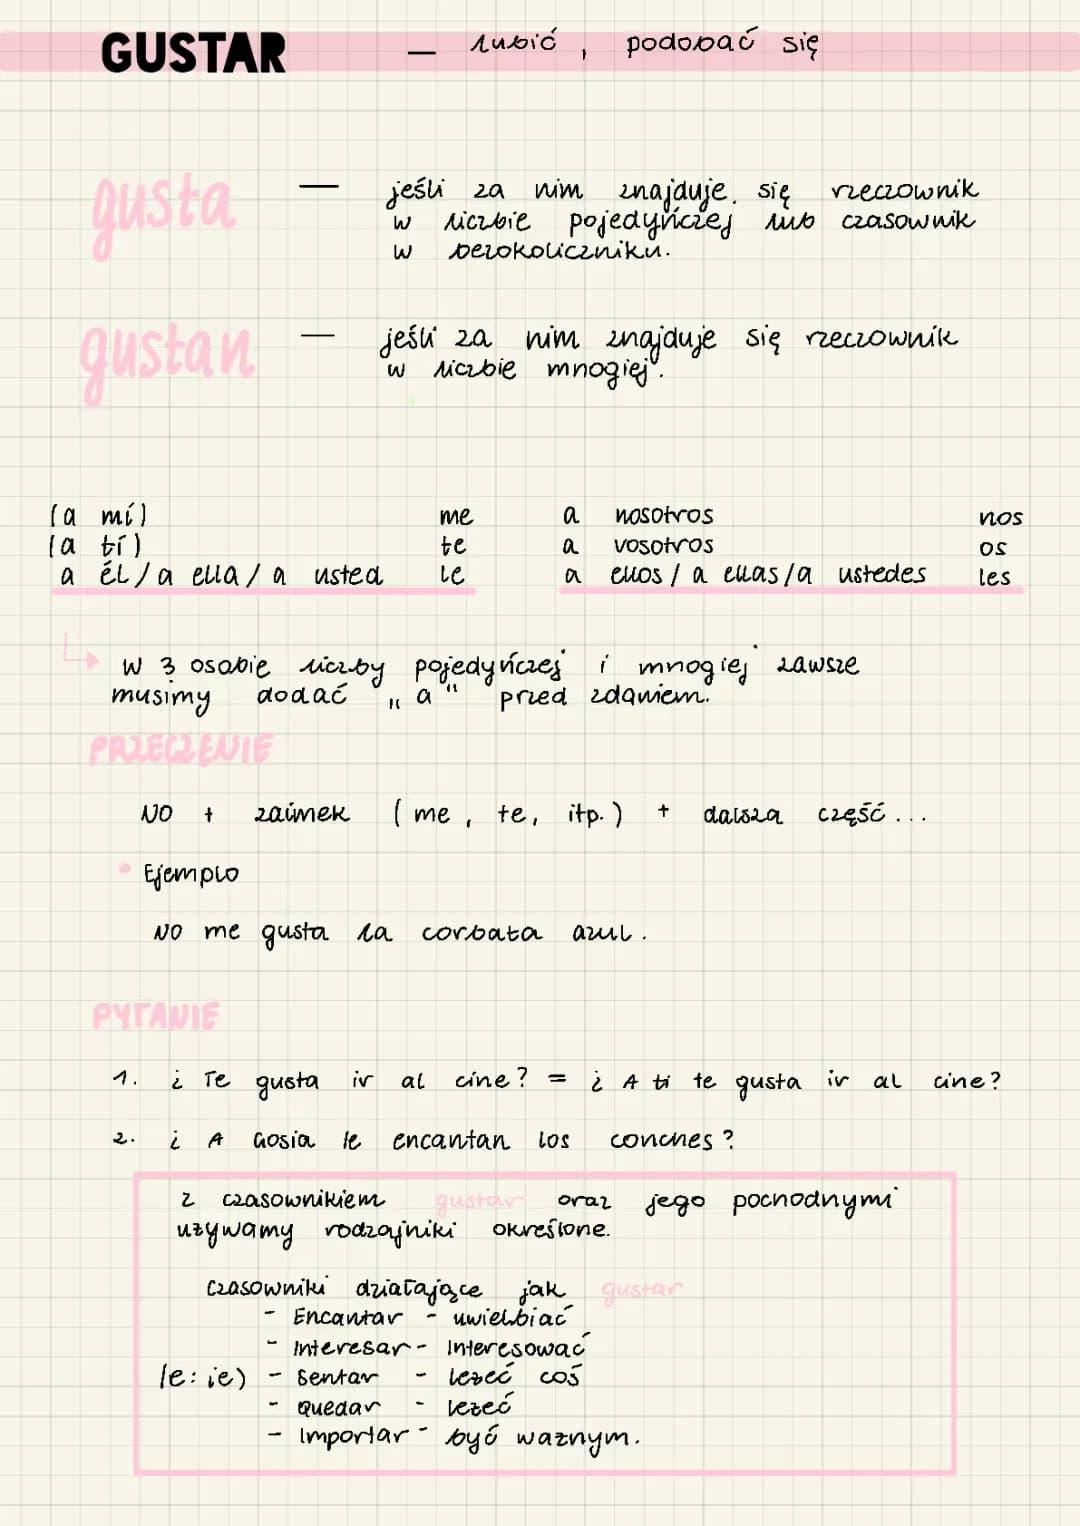 GUSTAR — lubić, podobać się
gusta — jeśli za nim znajduje się rzeczownik
w liczbie pojedyńczej lub czasownik
w bezokoliczniku.
gustan — jeśli za nim znajduje się rzeczownik
w liczbie mnogiej.
(a mí) me a nosotros nos
(a tí) te a vosotros os
a él/a ella/a usted le a ellos/a ellas/a ustedes les
↳ W 3 osobie liczby pojedyńczej i mnogiej zawsze
musimy dodać „a" przed zdaniem.
PRZECZENIE
NO + zaimek (me, te, itp.) + dalsza część...
• Ejemplo
NO me gusta la corbata azul.
PYTANIE
1. ¿Te gusta ir al cine? = ¿A ti te gusta ir al cine?
2. ¿A Gosia le encantan los conches?
Z czasownikiem gustar oraz jego pochodnymi
używamy rodzajniki określone.
Czasowniki działające jak gustar
- Encantar - uwielbiać
- Interesar - Interesować
(e:ie) - Sentar - leżeć coś
- Quedar - leżeć
- Importar - być ważnym.